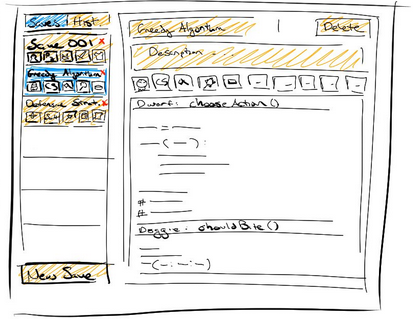 Saves | Hist
Save 001 x
Greedy Algorithm x
Defensive Strat. x
New Save
Greedy Algorithm
Delete
Description
Dwarf: chooseAction()
#
#
Doggie: shouldBite()